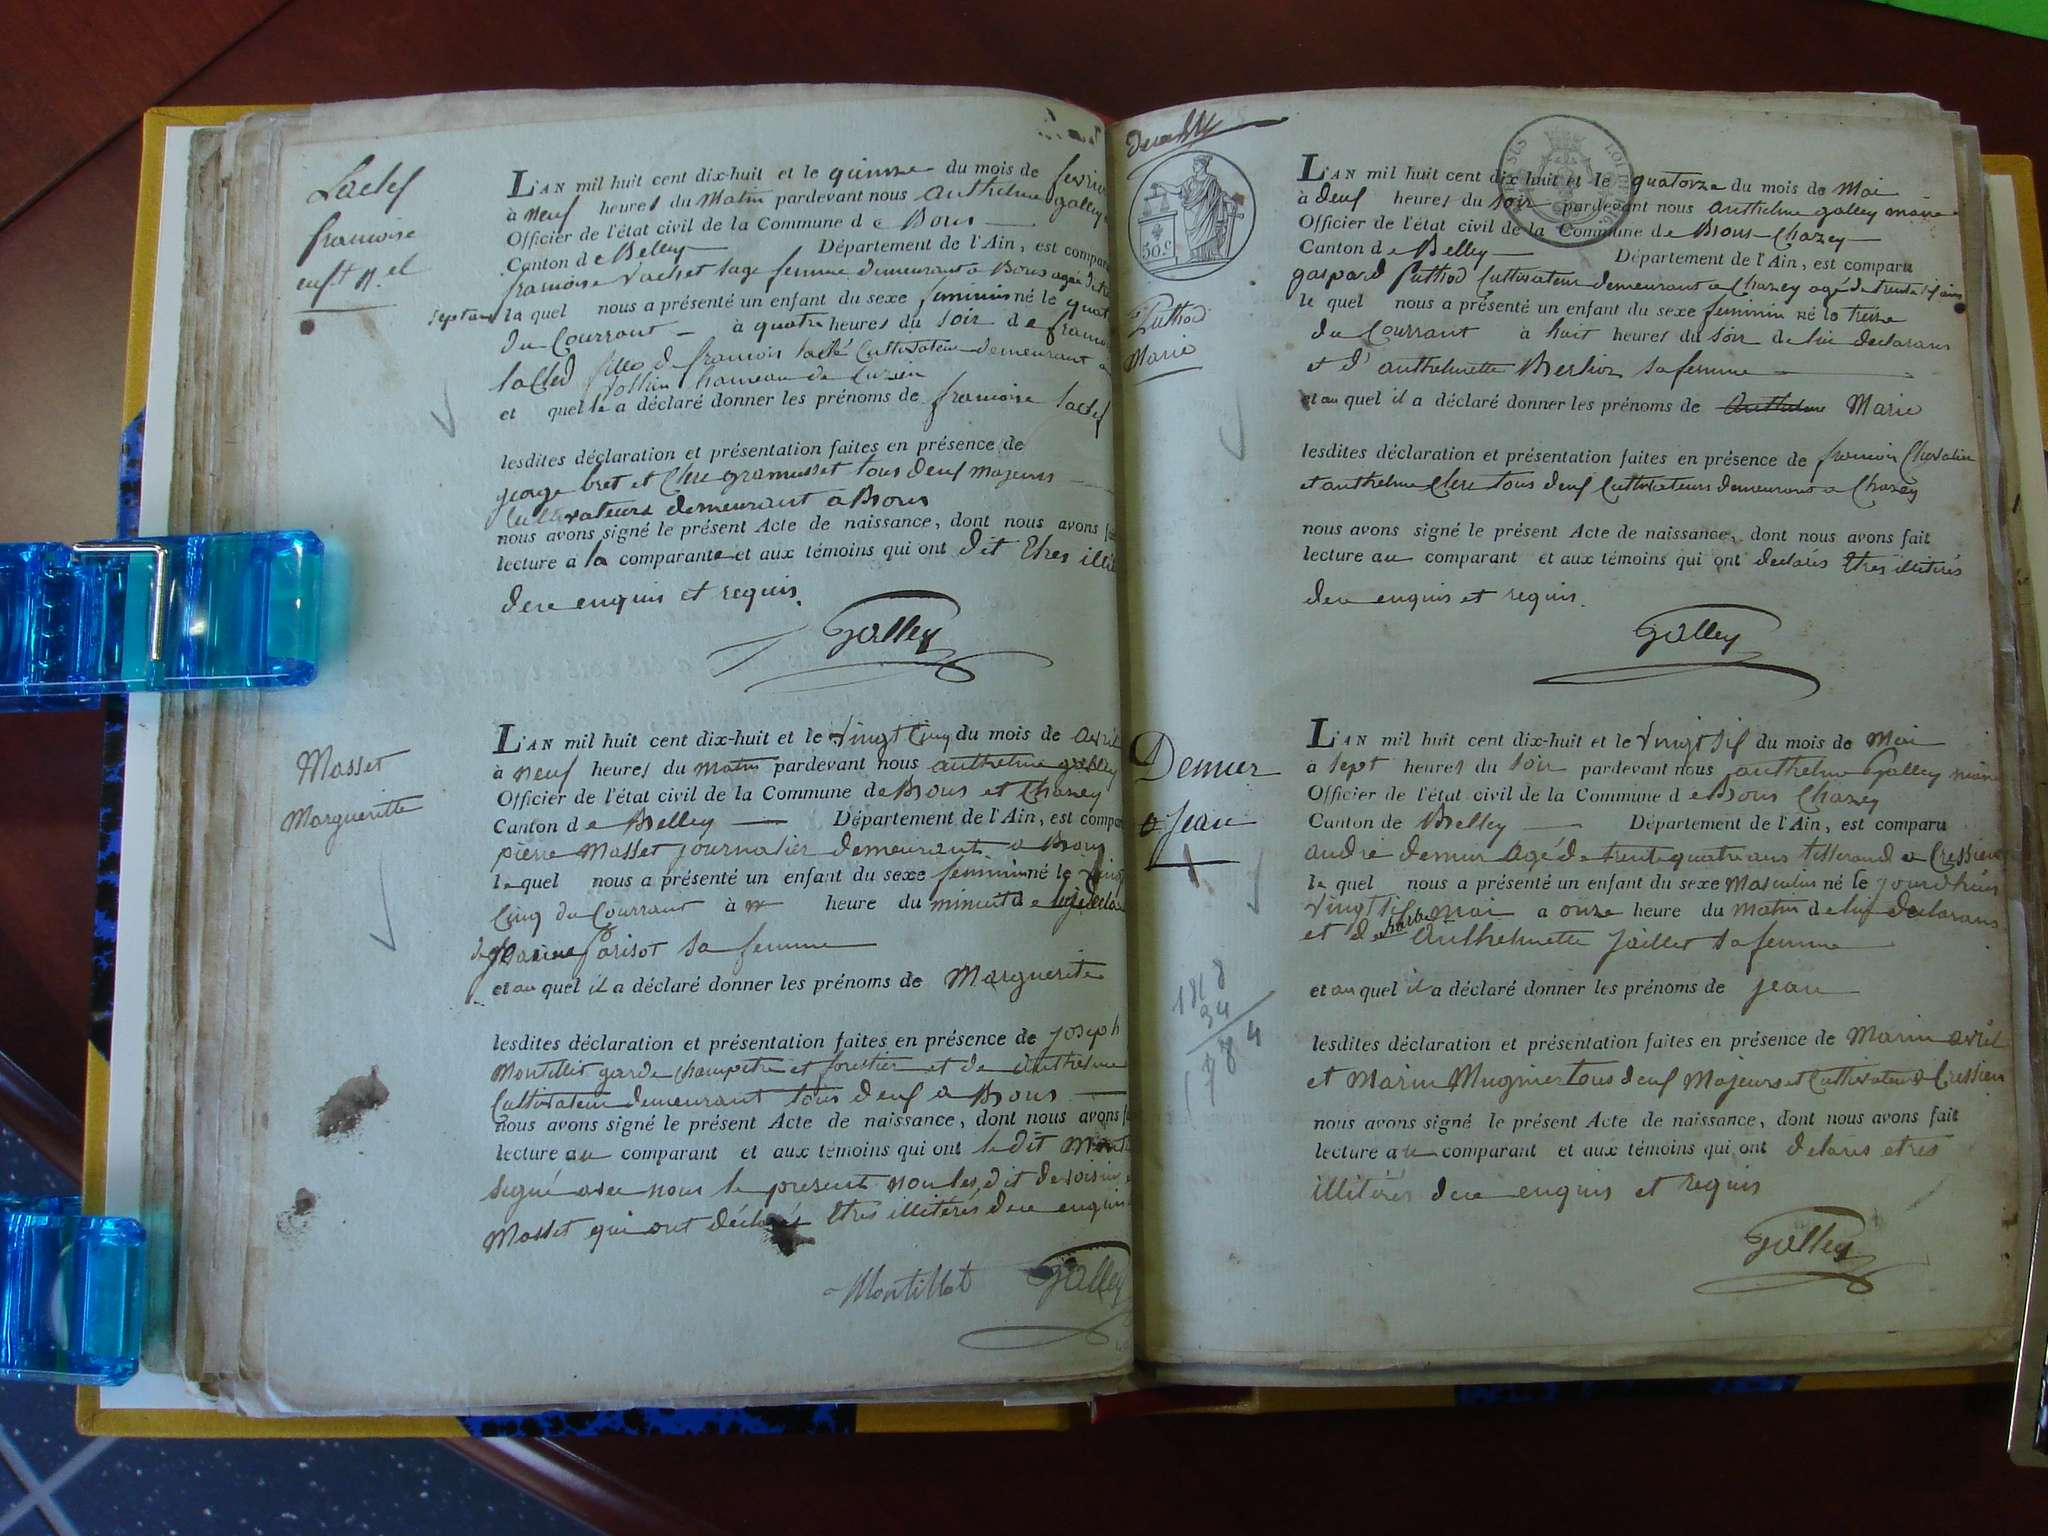 Lacled
francoise
enft n.el
L'AN mil huit cent dix-huit et le quinze du mois de fevrier
à neuf heures du Matin pardevant nous Anthelme galley
Officier de l'état civil de la Commune de Brons
Canton de Belley Département de l'Ain, est compar
francoise Vachet sage femme demeurant a Brons agée de
septans la quel nous a présenté un enfant du sexe feminin né le quat
du Courrant à quatre heures du soir de francoi
lacled fille de francois lacle Cultivateur demeurant a
hameau de
et quel le a déclaré donner les prénoms de francoise lacled
lesdites déclaration et présentation faites en présence de
george bret et Clere gramusset tous deux majeurs
Cultivateurs demeurant a Brons
nous avons signé le présent Acte de naissance, dont nous avons
lecture a la comparante et aux témoins qui ont dit Etres illi
dece enquis et requis.
Galley
Masset
Margueritte
L'AN mil huit cent dix-huit et le Vingt Cinq du mois de avril
à neuf heures du matin pardevant nous anthelme galley
Officier de l'état civil de la Commune de Brons et Chazey
Canton de Belley Département de l'Ain, est compar
pierre Masset journalier demeurant a Brons
le quel nous a présenté un enfant du sexe feminin né le Vingt
Cinq du Courrant à heure du minuit de declar
Parisot sa femme
et au quel il a déclaré donner les prénoms de Marguerite
lesdites déclaration et présentation faites en présence de joseph
Montillet garde Champetre et forestier et de anthelme
Cultivateur demeurant tous deux a Brons
nous avons signé le présent Acte de naissance, dont nous avons
lecture au comparant et aux témoins qui ont le dit
signé avec nous le present non les dit
Masset qui ont déclarés Etres illitérés dece enquis
Montillet Galley
50.c
Puthod
Marie
L'AN mil huit cent dix-huit et le quatorze du mois de Mai
à deux heures du soir pardevant nous Anthelme galley maire
Officier de l'état civil de la Commune de Brons-Chazey
Canton de Belley Département de l'Ain, est comparu
gaspard Puthod Cultivateur demeurant a Chazey agé de trente ans
le quel nous a présenté un enfant du sexe feminin né le treize
du Courrant à huit heures du soir de lui declarans
et d'anthelmette Berlioz sa femme
et au quel il a déclaré donner les prénoms de Anthelme Marie
lesdites déclaration et présentation faites en présence de francois Chevalier
et anthelme Clere tous deux Cultivateurs demeurans a Chazey
nous avons signé le présent Acte de naissance, dont nous avons fait
lecture au comparant et aux témoins qui ont declarés Etres illitérés
dece enquis et requis.
Galley
Demur
Jean
1818
34
1784
L'AN mil huit cent dix-huit et le Vingt Six du mois de Mai
à sept heures du Soir pardevant nous anthelme Galley maire
Officier de l'état civil de la Commune de Brons Chazey
Canton de Belley Département de l'Ain, est comparu
andré demur Agé de trente quatre ans tisserand a Cressieu
le quel nous a présenté un enfant du sexe Masculin né le jourdhuis
vingt six mai a onze heure du matin de lui declarans
et de Anthelmette Jaillet sa femme
et au quel il a déclaré donner les prénoms de jean
lesdites déclaration et présentation faites en présence de Marin avril
et Marin Mugnier tous deux Majeurs et Cultivateurs a Cressieu
nous avons signé le présent Acte de naissance, dont nous avons fait
lecture au comparant et aux témoins qui ont delarés etres
illitérés dece enquis et requis
Galley